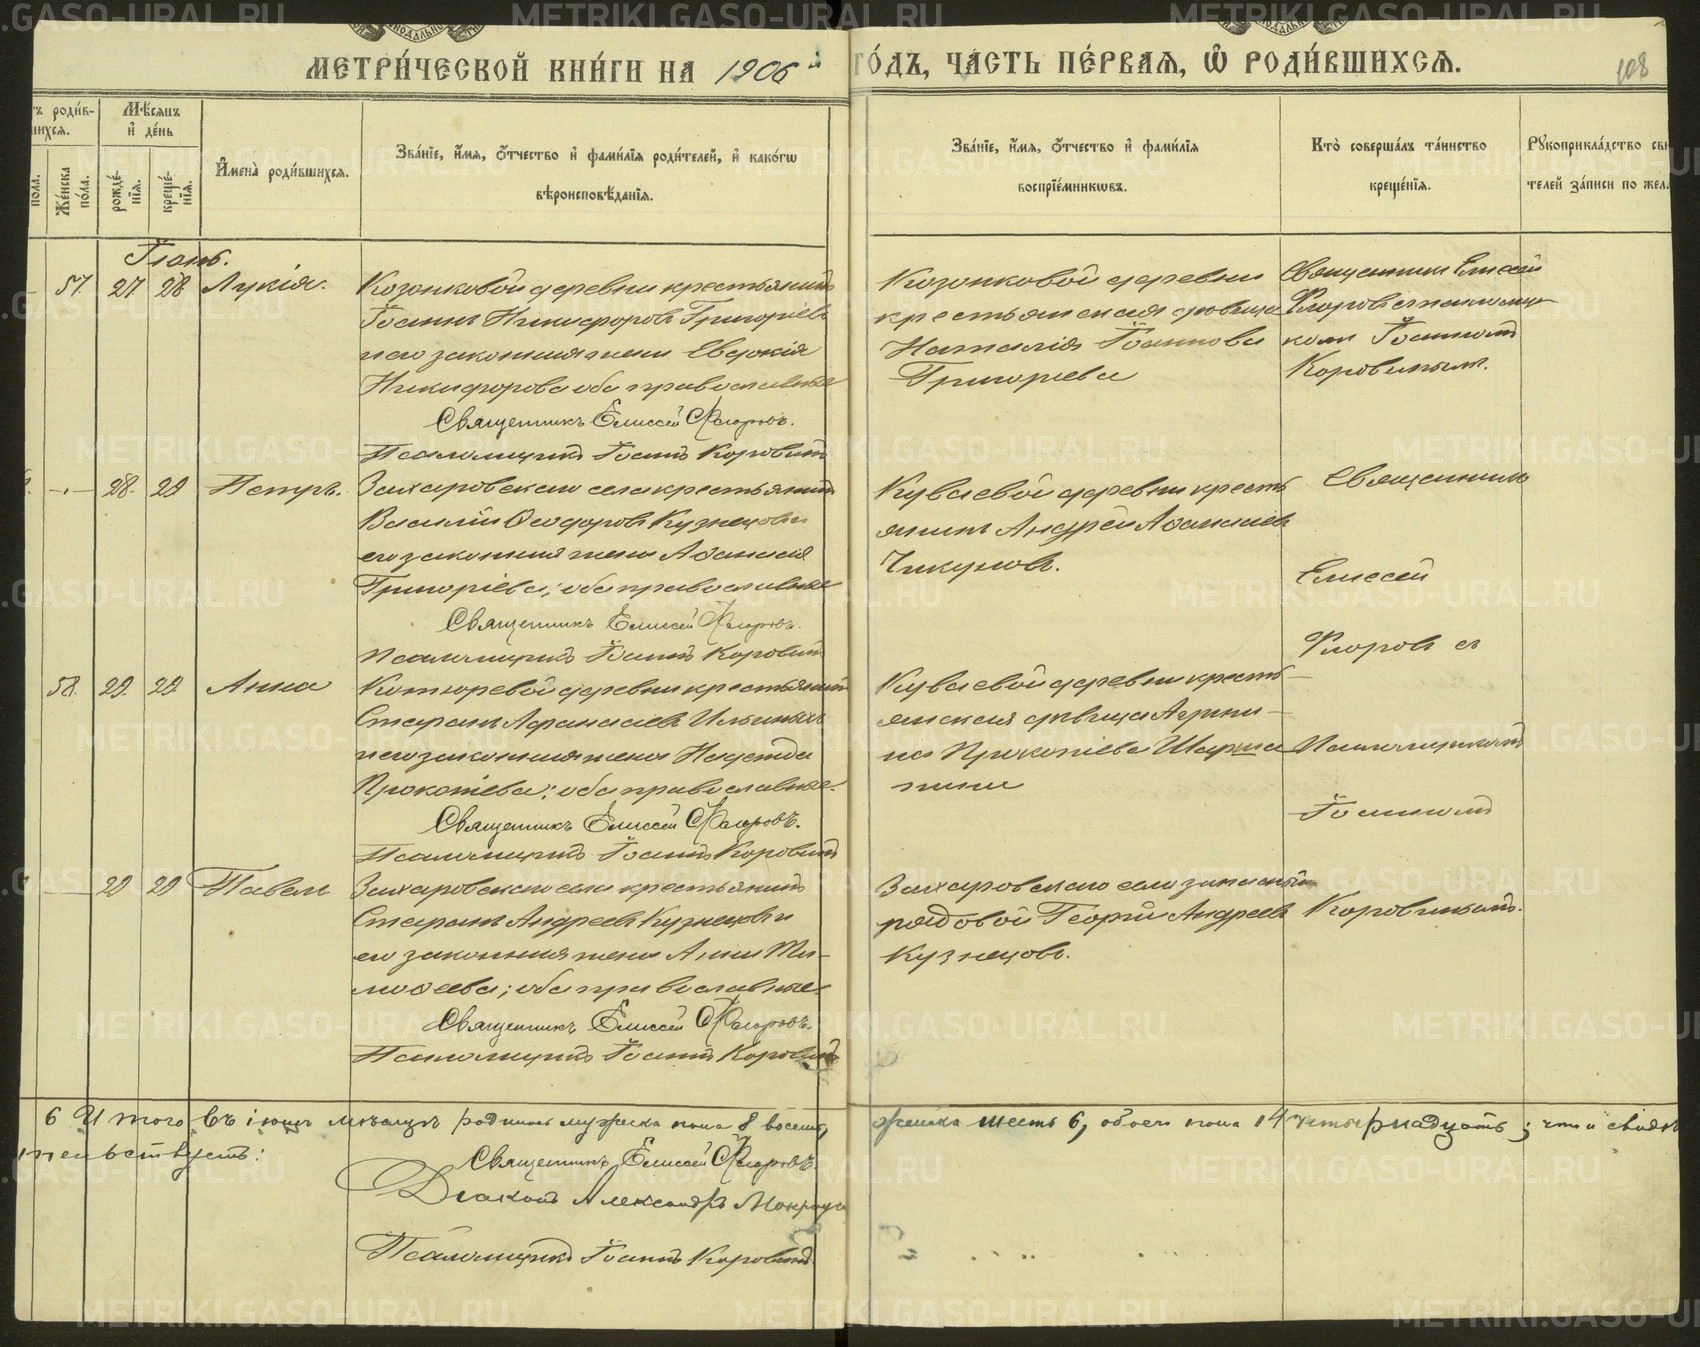 МЕТРИ́ЧЕСКОЙ КНИ́ГИ НА 1906й ГО́ДЪ, ЧА́СТЬ ПЕ́РВАЯ, Ѡ҆ РОДИ́ВШИХСЯ.
108
тъ роди́в-
шихся.
Мѣ́сяцъ
и҆ де́нь
пола.
Же́нска
по́ла.
рожде́-
нїя.
креще́-
нїя.
И҆мена̀ роди́вшихся.
Зва́нїе, и҆́мя, ѻ҆́тчество и҆ фами́лїя роди́телей, и҆ како́гѡ
вѣроисповѣ́данїя.
Зва́нїе, и҆́мя, ѻ҆́тчество и҆ фами́лїя
воспрїе́мникѡвъ.
Кто̀ соверша́лъ та́инство
креще́нїя.
Рꙋкоприкла́дство сви
телей за́писи по жела
Іюнь.
57. 27 28 Лукія.
Козонковой деревни крестьянинъ
Іоаннъ Никифоровъ Григорьевъ
и его законная жена Евдокія
Никифорова оба православные
Священникъ Елиссей Флоровъ.
Псаломщикъ Іоаннъ Коровинъ
Козонковой деревни
крестьянская дѣвица
Наталія Іоаннова
Григорьева
Священникъ Елиссей
Флоровъ съ псаломщи-
комъ Іоанномъ
Коровинымъ.
28. 29 Петръ.
Захаровскаго села крестьянинъ
Василій Ѳеодоровъ Кузнецовъ и
его законная жена Аѳанасія
Григоріева; оба православные
Священникъ Елиссей Флоровъ.
Псаломщикъ Іоаннъ Коровинъ
Куваевой деревни кресть
янинъ Андрей Аѳанасіевъ
Чикуновъ.
Священникъ
Елиссей
Флоровъ съ
58. 29. 29. Анна
деревни крестьянинъ
Стефанъ Афанасіевъ Ильиныхъ
и его законная жена
Прокопіева; оба православные.
Священникъ Елиссей Флоровъ.
Псаломщикъ Іоаннъ Коровинъ
Куваевой деревни кресть-
янская дѣвица Агрипи-
на Прокопіева
Псаломщикомъ
Іоанномъ
29 29 Павелъ
Захаровскаго села крестьянинъ
Стефанъ Андреевъ Кузнецовъ и
его законная жена Анна Ти-
моѳеева; оба православные
Священникъ Елиссей Флоровъ.
Псаломщикъ Іоаннъ Коровинъ
Захаровскаго села запасный
рядовой Георгій Андреевъ
Кузнецовъ.
Коровинымъ.
6 Итого въ іюнѣ мѣсяцѣ родилось мужска пола 8 восемь, женска шесть 6, обоего пола 14 четырнадцать; что и свидѣ
тельствуетъ:
Священникъ Елиссей Флоровъ.
Діаконъ Александръ
Псаломщикъ Іоаннъ Коровинъ
METRIKI.GASO-URAL.RU